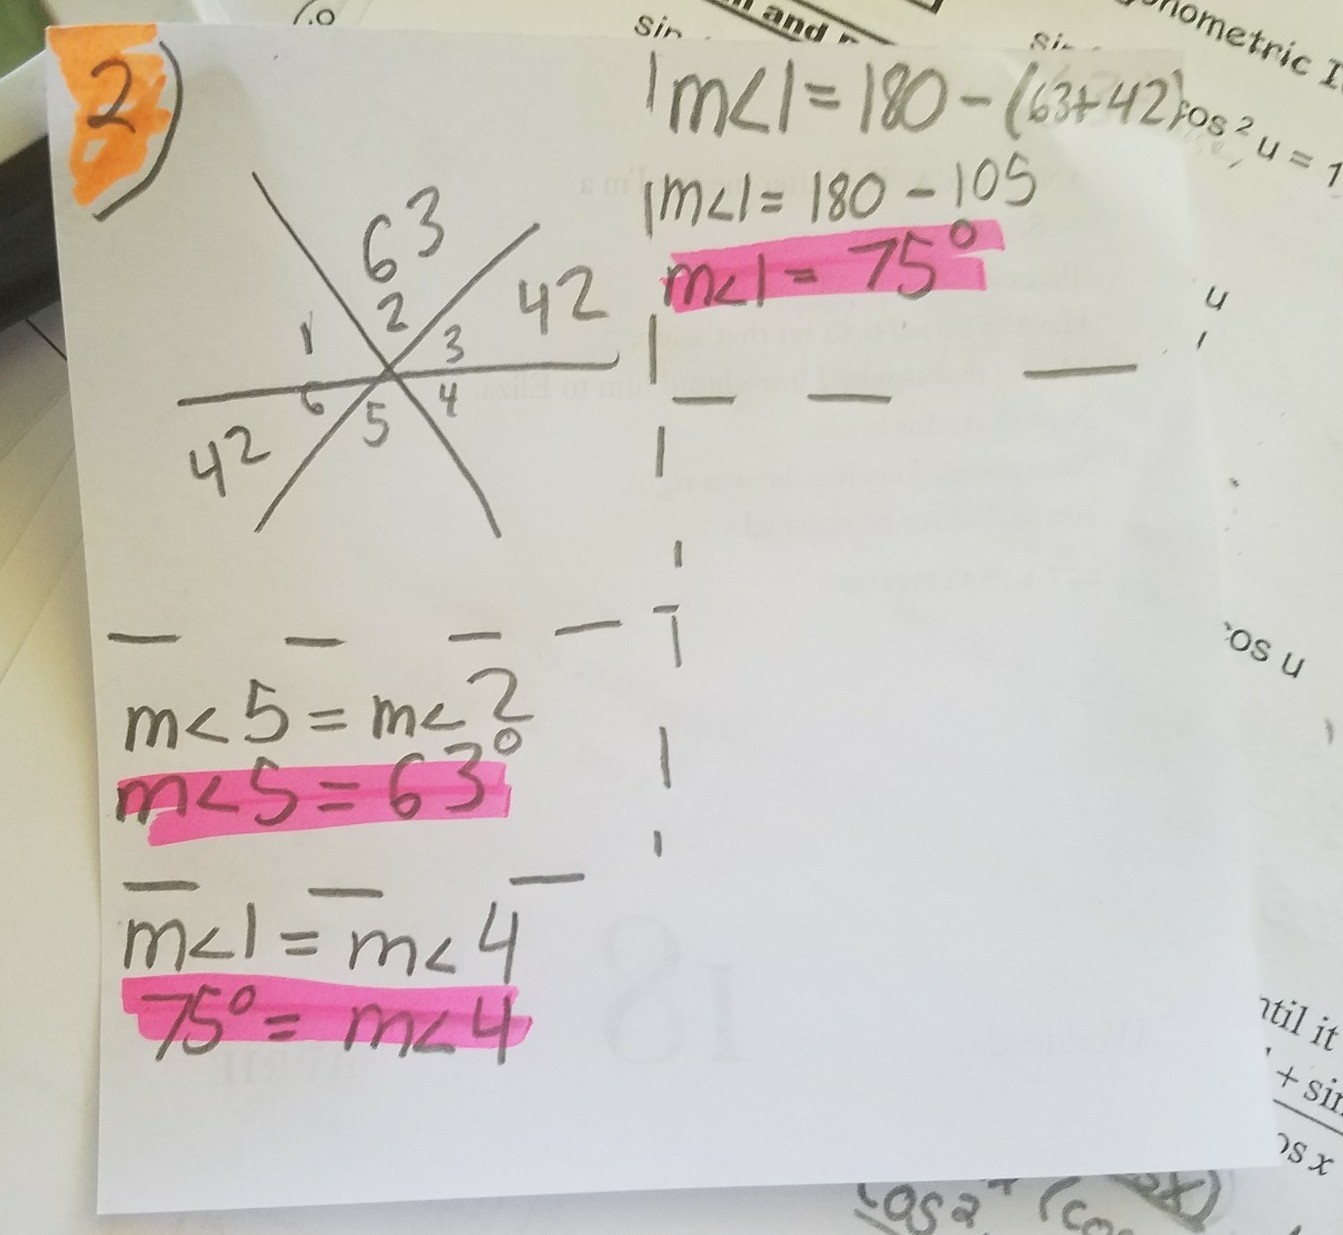 2)
63
42
1
2
3
6
5
4
42
m<1 = 180 - (63+42)
m<1 = 180 - 105
m<1 = 75°
m<5 = m<2
m<5 = 63°
m<1 = m<4
75° = m<4
sin
and
nometric I
cos² u = 1
u
os u
ntil it
+ sin
os x
18